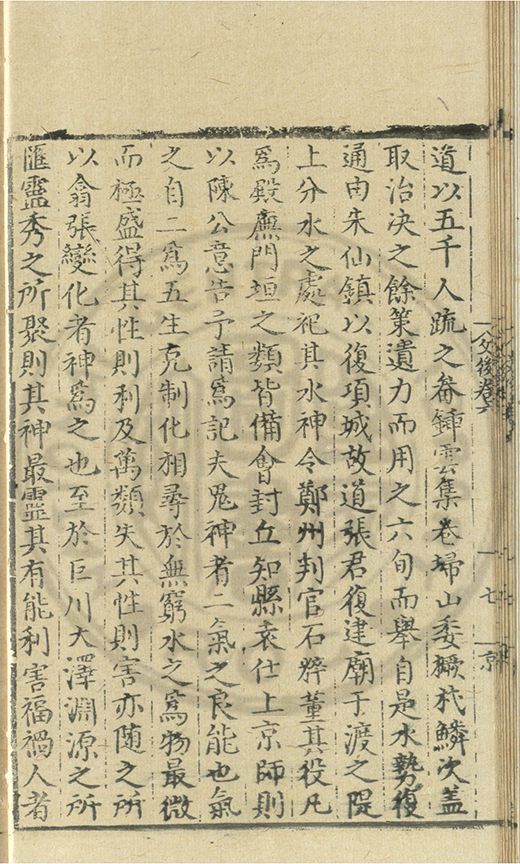 文後卷六
七
京
道以五千人疏之畚鍤雲集巻埽山委橛杙鱗次盖
取治决之餘策遺力而用之六旬而舉自是水勢復
通由朱仙鎮以復項城故道張君復建廟于渡之隄
上分水之處祀其水神令鄭州判官石粹董其役凡
爲殿廡門垣之類皆備會封丘知縣袁仕上京師則
以陳公意告予請爲記夫鬼神者二氣之良能也氣
之自二爲五生克制化相尋於無窮水之爲物最微
而極盛得其性則利及萬類失其性則害亦随之所
以翕張變化者神爲之也至於巨川大澤淵源之所
滙靈秀之所聚則其神最靈其有能利害福禍人者